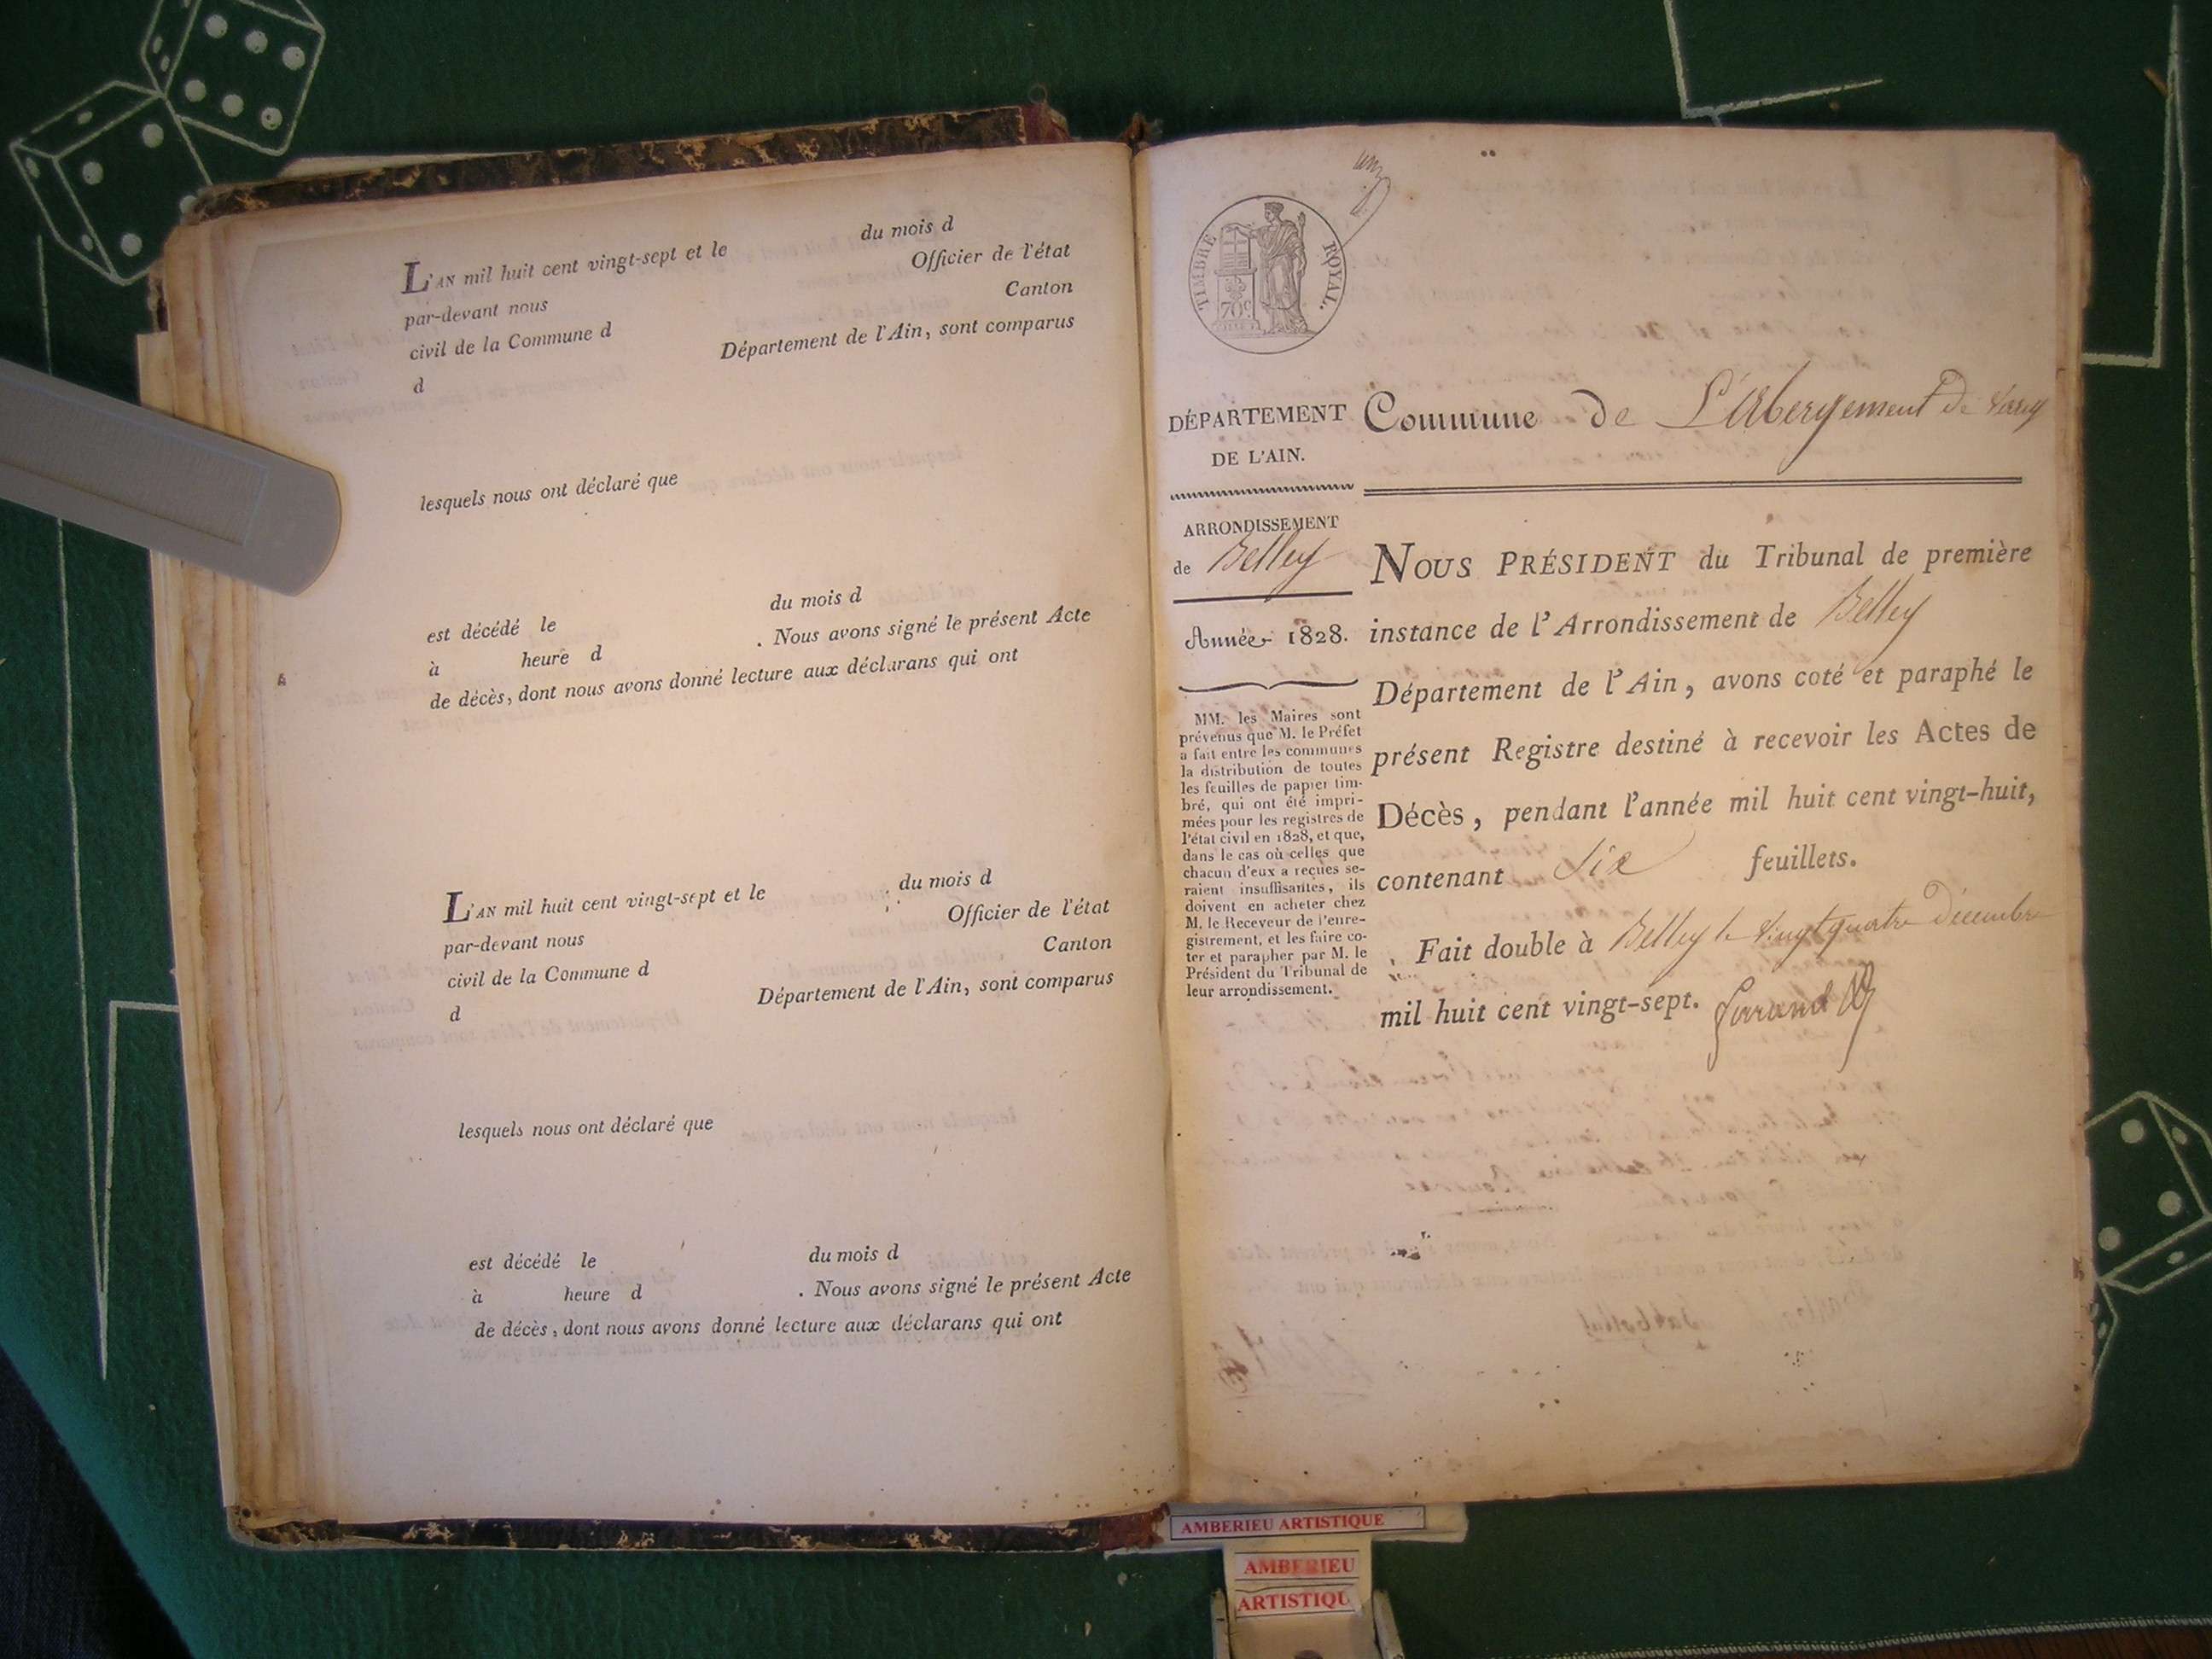 L'AN mil huit cent vingt-sept et le du mois d
par-devant nous Officier de l'état
civil de la Commune d Canton
d Département de l'Ain, sont comparus
lesquels nous ont déclaré que
est décédé le du mois d
à heure d . Nous avons signé le présent Acte
de décès, dont nous avons donné lecture aux déclarans qui ont
L'AN mil huit cent vingt-sept et le du mois d
par-devant nous Officier de l'état
civil de la Commune d Canton
d Département de l'Ain, sont comparus
lesquels nous ont déclaré que
est décédé le du mois d
à heure d . Nous avons signé le présent Acte
de décès, dont nous avons donné lecture aux déclarans qui ont
TIMBRE ROYAL.
70c.
DÉPARTEMENT
DE L'AIN.
ARRONDISSEMENT
de Belley
Année 1828.
MM. les Maires sont
prévenus que M. le Préfet
a fait entre les communes
la distribution de toutes
les feuilles de papier tim-
bré, qui ont été impri-
mées pour les registres de
l'état civil en 1828, et que,
dans le cas où celles que
chacun d'eux a reçues se-
raient insuffisantes, ils
doivent en acheter chez
M. le Receveur de l'enre-
gistrement, et les faire co-
ter et parapher par M. le
Président du Tribunal de
leur arrondissement.
Commune de L'Abergement de Varey
NOUS PRÉSIDENT du Tribunal de première
instance de l'Arrondissement de Belley
Département de l'Ain, avons coté et paraphé le
présent Registre destiné à recevoir les Actes de
Décès, pendant l'année mil huit cent vingt-huit,
contenant Six feuillets.
Fait double à Belley le vingt quatre Décembre
mil huit cent vingt-sept.
AMBERIEU ARTISTIQUE
AMBERIEU
ARTISTIQU